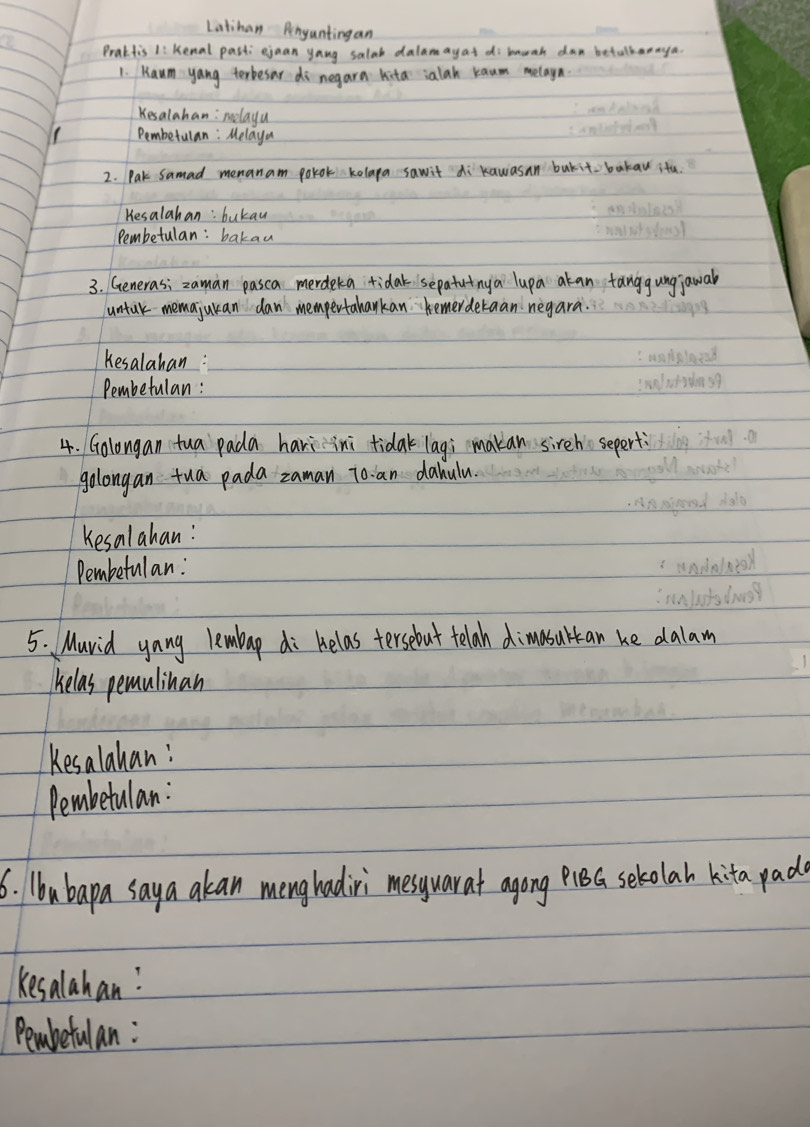 Latihan Penyuntingan
Praktis 1: Kenal pasti ejaan yang salah dalam ayat di bawah dan betulkannya.
1. Kaum yang terbesar di negara kita ialah kaum melayu.
Kesalahan : melayu
Pembetulan : Melayu
2. Pak Samad menanam pokok kelapa sawit di kawasan bukit-bukau itu.
Kesalahan : bukau
Pembetulan : bakau
3. Generasi zaman pasca merdeka tidak sepatutnya lupa akan tanggungjawab
untuk memajukan dan mempertahankan kemerdekaan negara.
Kesalahan :
Pembetulan :
4. Golongan tua pada hari ini tidak lagi makan sireh seperti
golongan tua pada zaman 70-an dahulu.
Kesalahan :
Pembetulan :
5. Murid yang lembap di kelas tersebut telah dimasukkan ke dalam
kelas pemulihan
Kesalahan :
Pembetulan :
6. Ibu bapa saya akan menghadiri mesyuarat agong PIBG sekolah kita pada
Kesalahan :
Pembetulan :